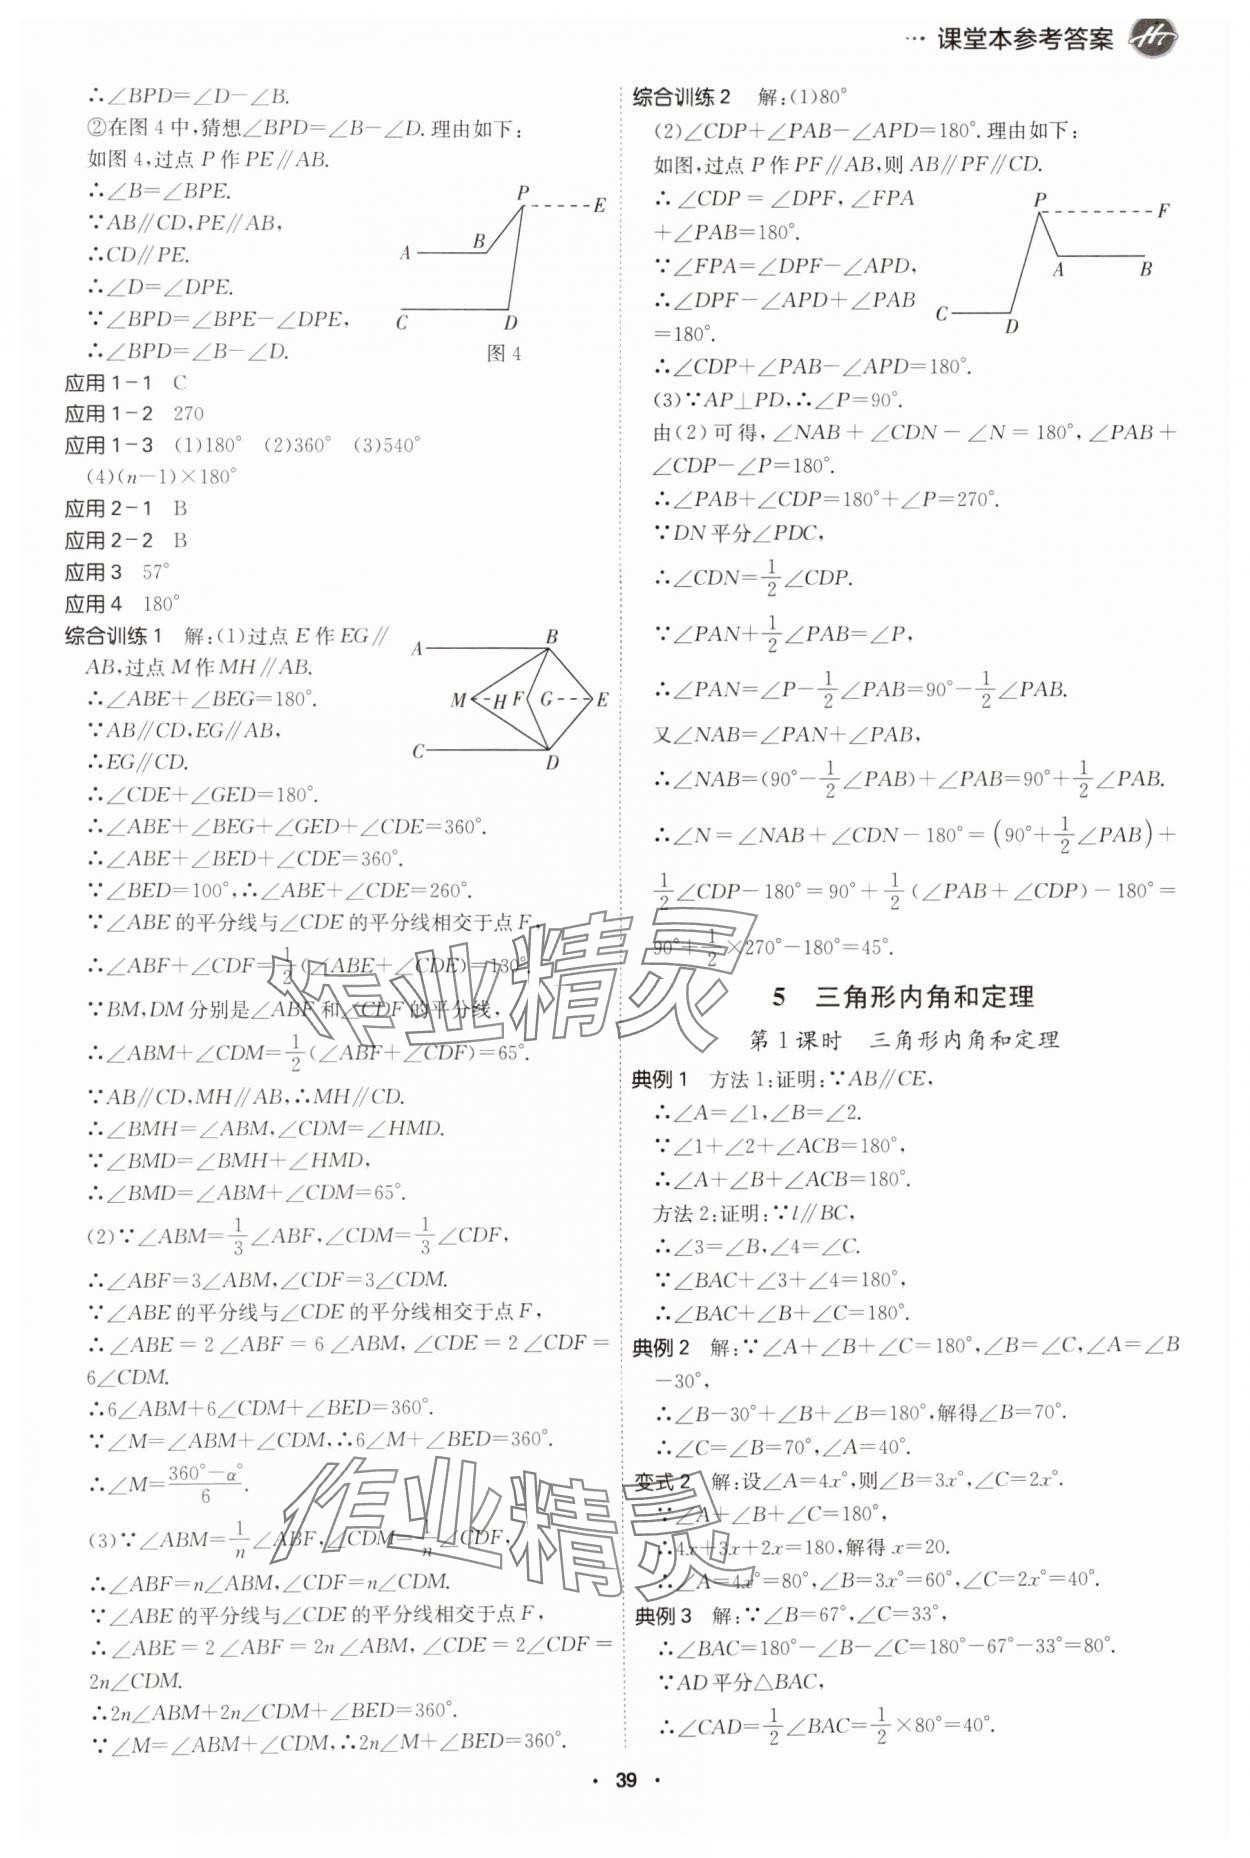 ··· 课堂本参考答案
∴∠BPD=∠D-∠B.
②在图4中,猜想∠BPD=∠B-∠D.理由如下:
如图4,过点P作PE∥AB.
∴∠B=∠BPE.
∵AB∥CD,PE∥AB,
∴CD∥PE.
∴∠D=∠DPE.
∵∠BPD=∠BPE-∠DPE,
∴∠BPD=∠B-∠D.
P
E
A
B
C
D
图4
应用1-1 C
应用1-2 270
应用1-3 (1)180° (2)360° (3)540°
(4)(n-1)×180°
应用2-1 B
应用2-2 B
应用3 57°
应用4 180°
综合训练1 解:(1)过点E作EG∥
AB,过点M作MH∥AB.
∴∠ABE+∠BEG=180°.
∵AB∥CD,EG∥AB,
∴EG∥CD.
A
B
M
H
F
G
E
C
D
∴∠CDE+∠GED=180°.
∴∠ABE+∠BEG+∠GED+∠CDE=360°.
∴∠ABE+∠BED+∠CDE=360°.
∵∠BED=100°,∴∠ABE+∠CDE=260°.
∵∠ABE的平分线与∠CDE的平分线相交于点F,
∴∠ABF+∠CDF=1/2(∠ABE+∠CDE)=130°.
∵BM,DM分别是∠ABF和∠CDF的平分线,
∴∠ABM+∠CDM=1/2(∠ABF+∠CDF)=65°.
∵AB∥CD,MH∥AB,∴MH∥CD.
∴∠BMH=∠ABM,∠CDM=∠HMD.
∵∠BMD=∠BMH+∠HMD,
∴∠BMD=∠ABM+∠CDM=65°.
(2)∵∠ABM=1/3∠ABF,∠CDM=1/3∠CDF,
∴∠ABF=3∠ABM,∠CDF=3∠CDM.
∵∠ABE的平分线与∠CDE的平分线相交于点F,
∴∠ABE=2∠ABF=6∠ABM,∠CDE=2∠CDF=
6∠CDM.
∴6∠ABM+6∠CDM+∠BED=360°.
∵∠M=∠ABM+∠CDM,∴6∠M+∠BED=360°.
∴∠M=(360°-α°)/6.
(3)∵∠ABM=1/n∠ABF,∠CDM=1/n∠CDF,
∴∠ABF=n∠ABM,∠CDF=n∠CDM.
∵∠ABE的平分线与∠CDE的平分线相交于点F,
∴∠ABE=2∠ABF=2n∠ABM,∠CDE=2∠CDF=
2n∠CDM.
∴2n∠ABM+2n∠CDM+∠BED=360°.
∵∠M=∠ABM+∠CDM,∴2n∠M+∠BED=360°.
综合训练2 解:(1)80°
(2)∠CDP+∠PAB-∠APD=180°.理由如下:
如图,过点P作PF∥AB,则AB∥PF∥CD.
∴∠CDP=∠DPF,∠FPA
+∠PAB=180°.
∵∠FPA=∠DPF-∠APD,
∴∠DPF-∠APD+∠PAB
=180°.
P
F
A
B
C
D
∴∠CDP+∠PAB-∠APD=180°.
(3)∵AP⊥PD,∴∠P=90°.
由(2)可得,∠NAB+∠CDN-∠N=180°,∠PAB+
∠CDP-∠P=180°.
∴∠PAB+∠CDP=180°+∠P=270°.
∵DN平分∠PDC,
∴∠CDN=1/2∠CDP.
∵∠PAN+1/2∠PAB=∠P,
∴∠PAN=∠P-1/2∠PAB=90°-1/2∠PAB.
又∠NAB=∠PAN+∠PAB,
∴∠NAB=(90°-1/2∠PAB)+∠PAB=90°+1/2∠PAB.
∴∠N=∠NAB+∠CDN-180°=(90°+1/2∠PAB)+
1/2∠CDP-180°=90°+1/2(∠PAB+∠CDP)-180°=
90°+1/2×270°-180°=45°.
5 三角形内角和定理
第1课时 三角形内角和定理
典例1 方法1:证明:∵AB∥CE,
∴∠A=∠1,∠B=∠2.
∵∠1+∠2+∠ACB=180°,
∴∠A+∠B+∠ACB=180°.
方法2:证明:∵l∥BC,
∴∠3=∠B,∠4=∠C.
∵∠BAC+∠3+∠4=180°,
∴∠BAC+∠B+∠C=180°.
典例2 解:∵∠A+∠B+∠C=180°,∠B=∠C,∠A=∠B
-30°,
∴∠B-30°+∠B+∠B=180°,解得∠B=70°.
∴∠C=∠B=70°,∠A=40°.
变式2 解:设∠A=4x°,则∠B=3x°,∠C=2x°.
∵∠A+∠B+∠C=180°,
∴4x+3x+2x=180,解得x=20.
∴∠A=4x°=80°,∠B=3x°=60°,∠C=2x°=40°.
典例3 解:∵∠B=67°,∠C=33°,
∴∠BAC=180°-∠B-∠C=180°-67°-33°=80°.
∵AD平分△BAC,
∴∠CAD=1/2∠BAC=1/2×80°=40°.
· 39 ·
作业精灵
作业精灵